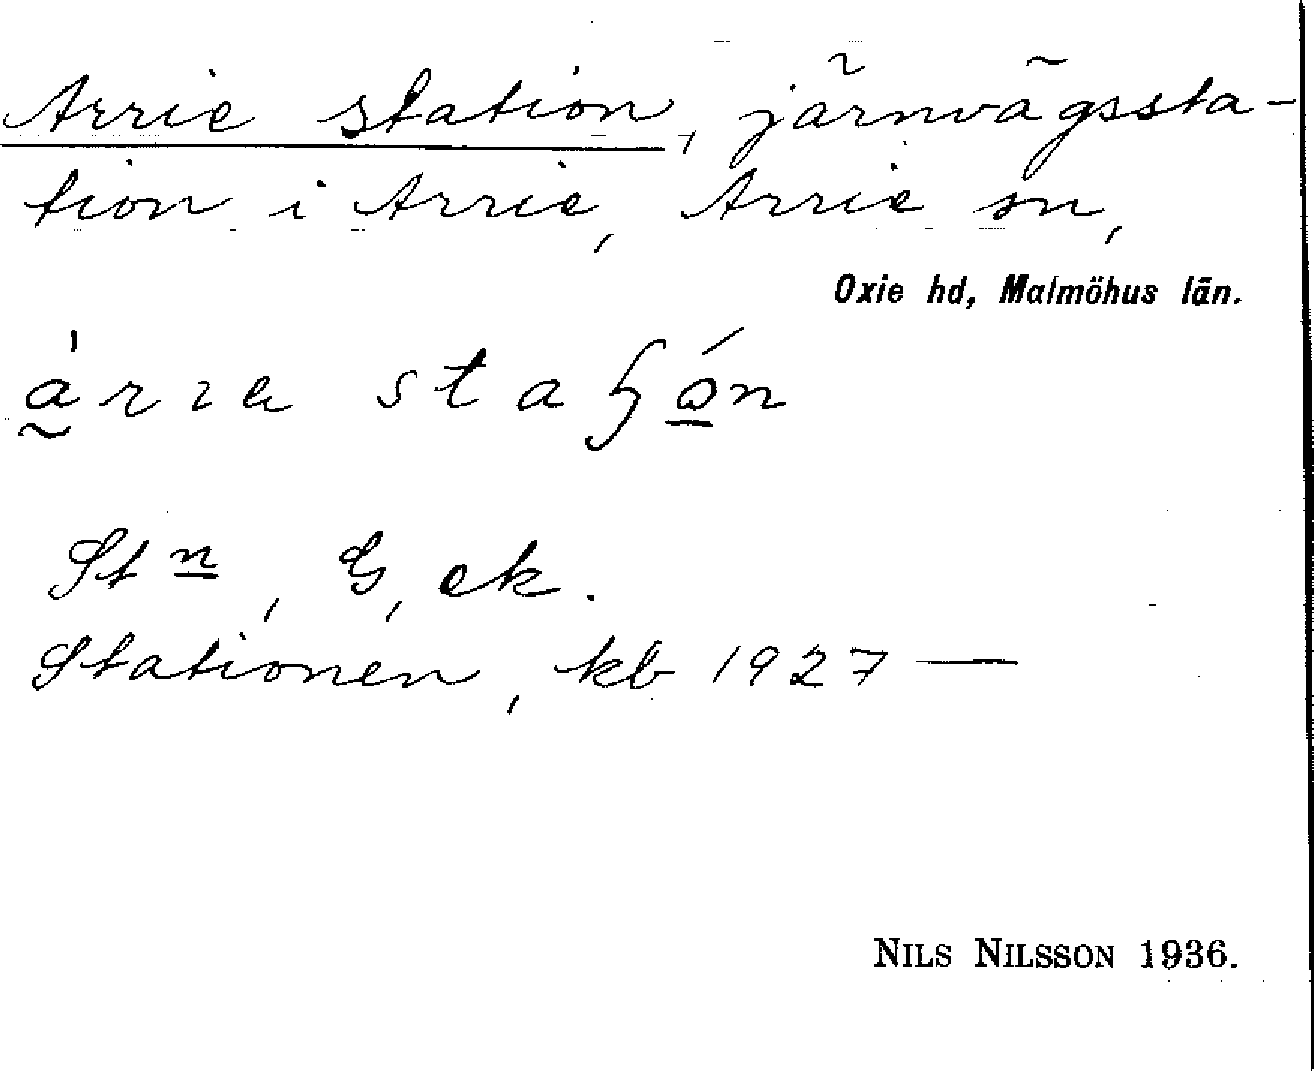 Arrie station, järnvägssta-
tion i Arrie, Arrie sn,
Oxie hd, Malmöhus län.
St n, G, ek.
Stationen, kb 1927 —
NILS NILSSON 1936.